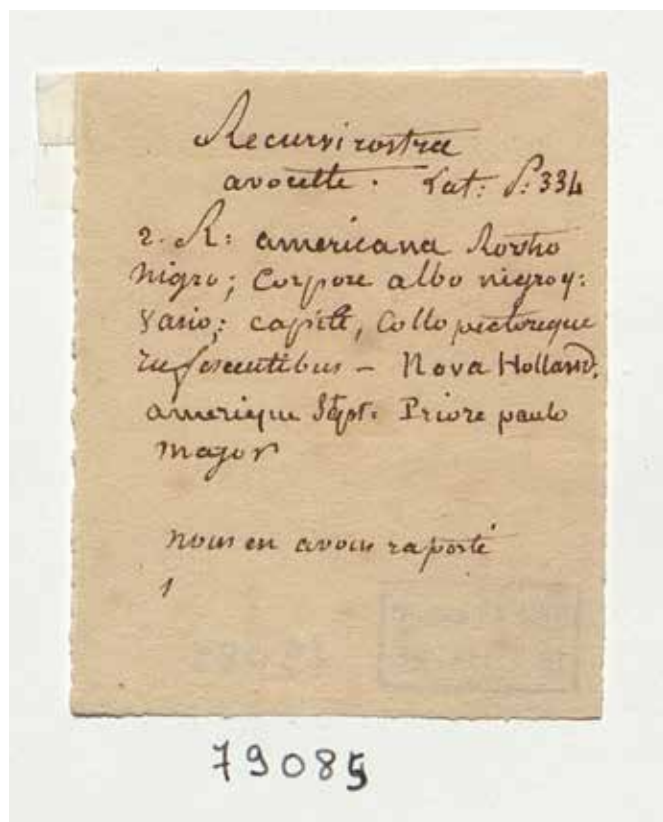 Recurvirostra
avocette. Lat: P: 334
2. R: americana Rostro
nigro; Corpore albo nigroq:
Vario; capite, Collo pectoreque
rufescentibus - Nova Holland.
amerique Sept: Priore paulo
major
nous en avons raporté
1
79085